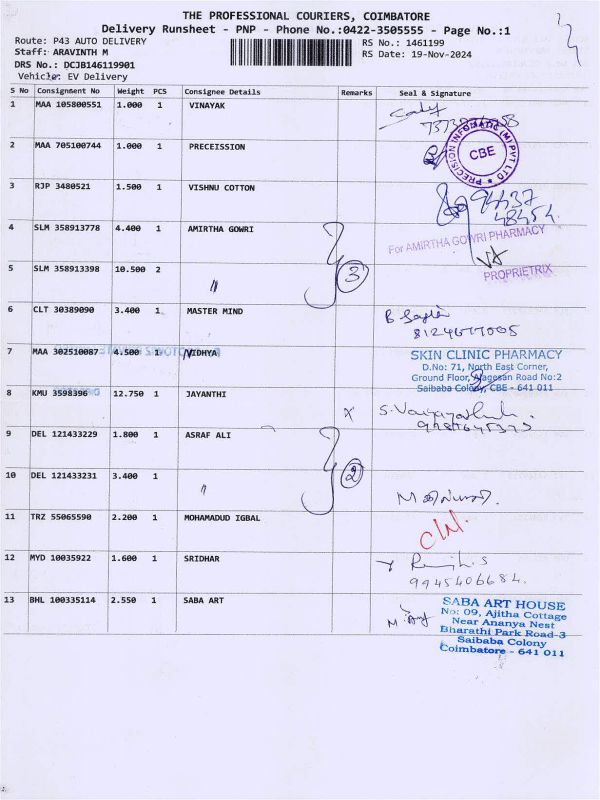 THE PROFESSIONAL COURIERS, COIMBATORE
Delivery Runsheet - PNP - Phone No.:0422-3505555 - Page No.:1
Route: P43 AUTO DELIVERY
RS No.: 1461199
Staff: ARAVINTH M
RS Date: 19-Nov-2024
DRS No.: DCJB146119901
Vehicle: EV Delivery
S No Consignment No Weight PCS Consignee Details Remarks Seal & Signature
1 MAA 105800551 1.000 1 VINAYAK
2 MAA 705100744 1.000 1 PRECEISSION
PRECISION INFOMATIC (M) PVT LTD
CBE
3 RJP 3480521 1.500 1 VISHNU COTTON
94437
48454
4 SLM 358913778 4.400 1 AMIRTHA GOWRI
For AMIRTHA GOWRI PHARMACY
5 SLM 358913398 10.500 2 〃
3
PROPRIETRIX
6 CLT 30389090 3.400 1 MASTER MIND
8124677005
7 MAA 302510087 4.500 1 VIDHYA
SKIN CLINIC PHARMACY
D.No: 71, North East Corner,
Ground Floor, Nagesan Road No:2
Saibaba Colony, CBE - 641 011
8 KMU 3598396 12.750 1 JAYANTHI
X
9 DEL 121433229 1.800 1 ASRAF ALI
10 DEL 121433231 3.400 1 〃
2
11 TRZ 55065590 2.200 1 MOHAMADUD IGBAL
12 MYD 10035922 1.600 1 SRIDHAR
9945406684.
13 BHL 100335114 2.550 1 SABA ART
SABA ART HOUSE
No: 09, Ajitha Cottage
Near Ananya Nest
Bharathi Park Road-3
Saibaba Colony
Coimbatore - 641 011